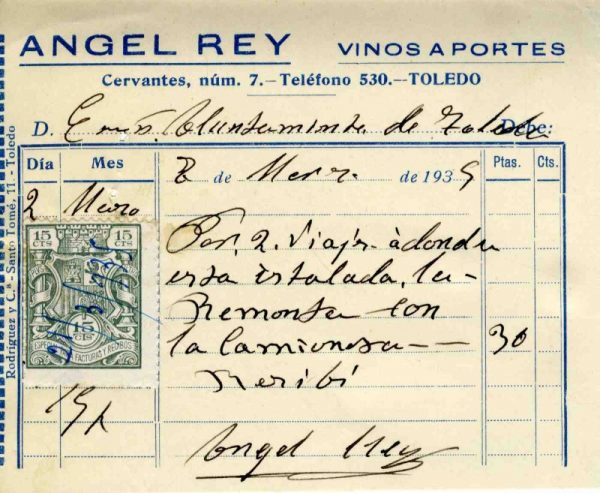 ANGEL REY VINOS A PORTES
Cervantes, núm. 7.-Teléfono 530.--TOLEDO
D. Ayuntamiento de Toledo Debe:
Día Mes Ptas. Cts.
de Marzo de 1935
2 Marzo
15 CTS 15 CTS
15 CTS
ESPECIAL FACTURAS Y RECIBOS
Por 2 Viajes à donde
esta istalada, la
Remonta con
la Camioneta -- 30
Recibi
Angel Rey
Rodríguez y C.ª-Santo Tomé, 11.-Toledo